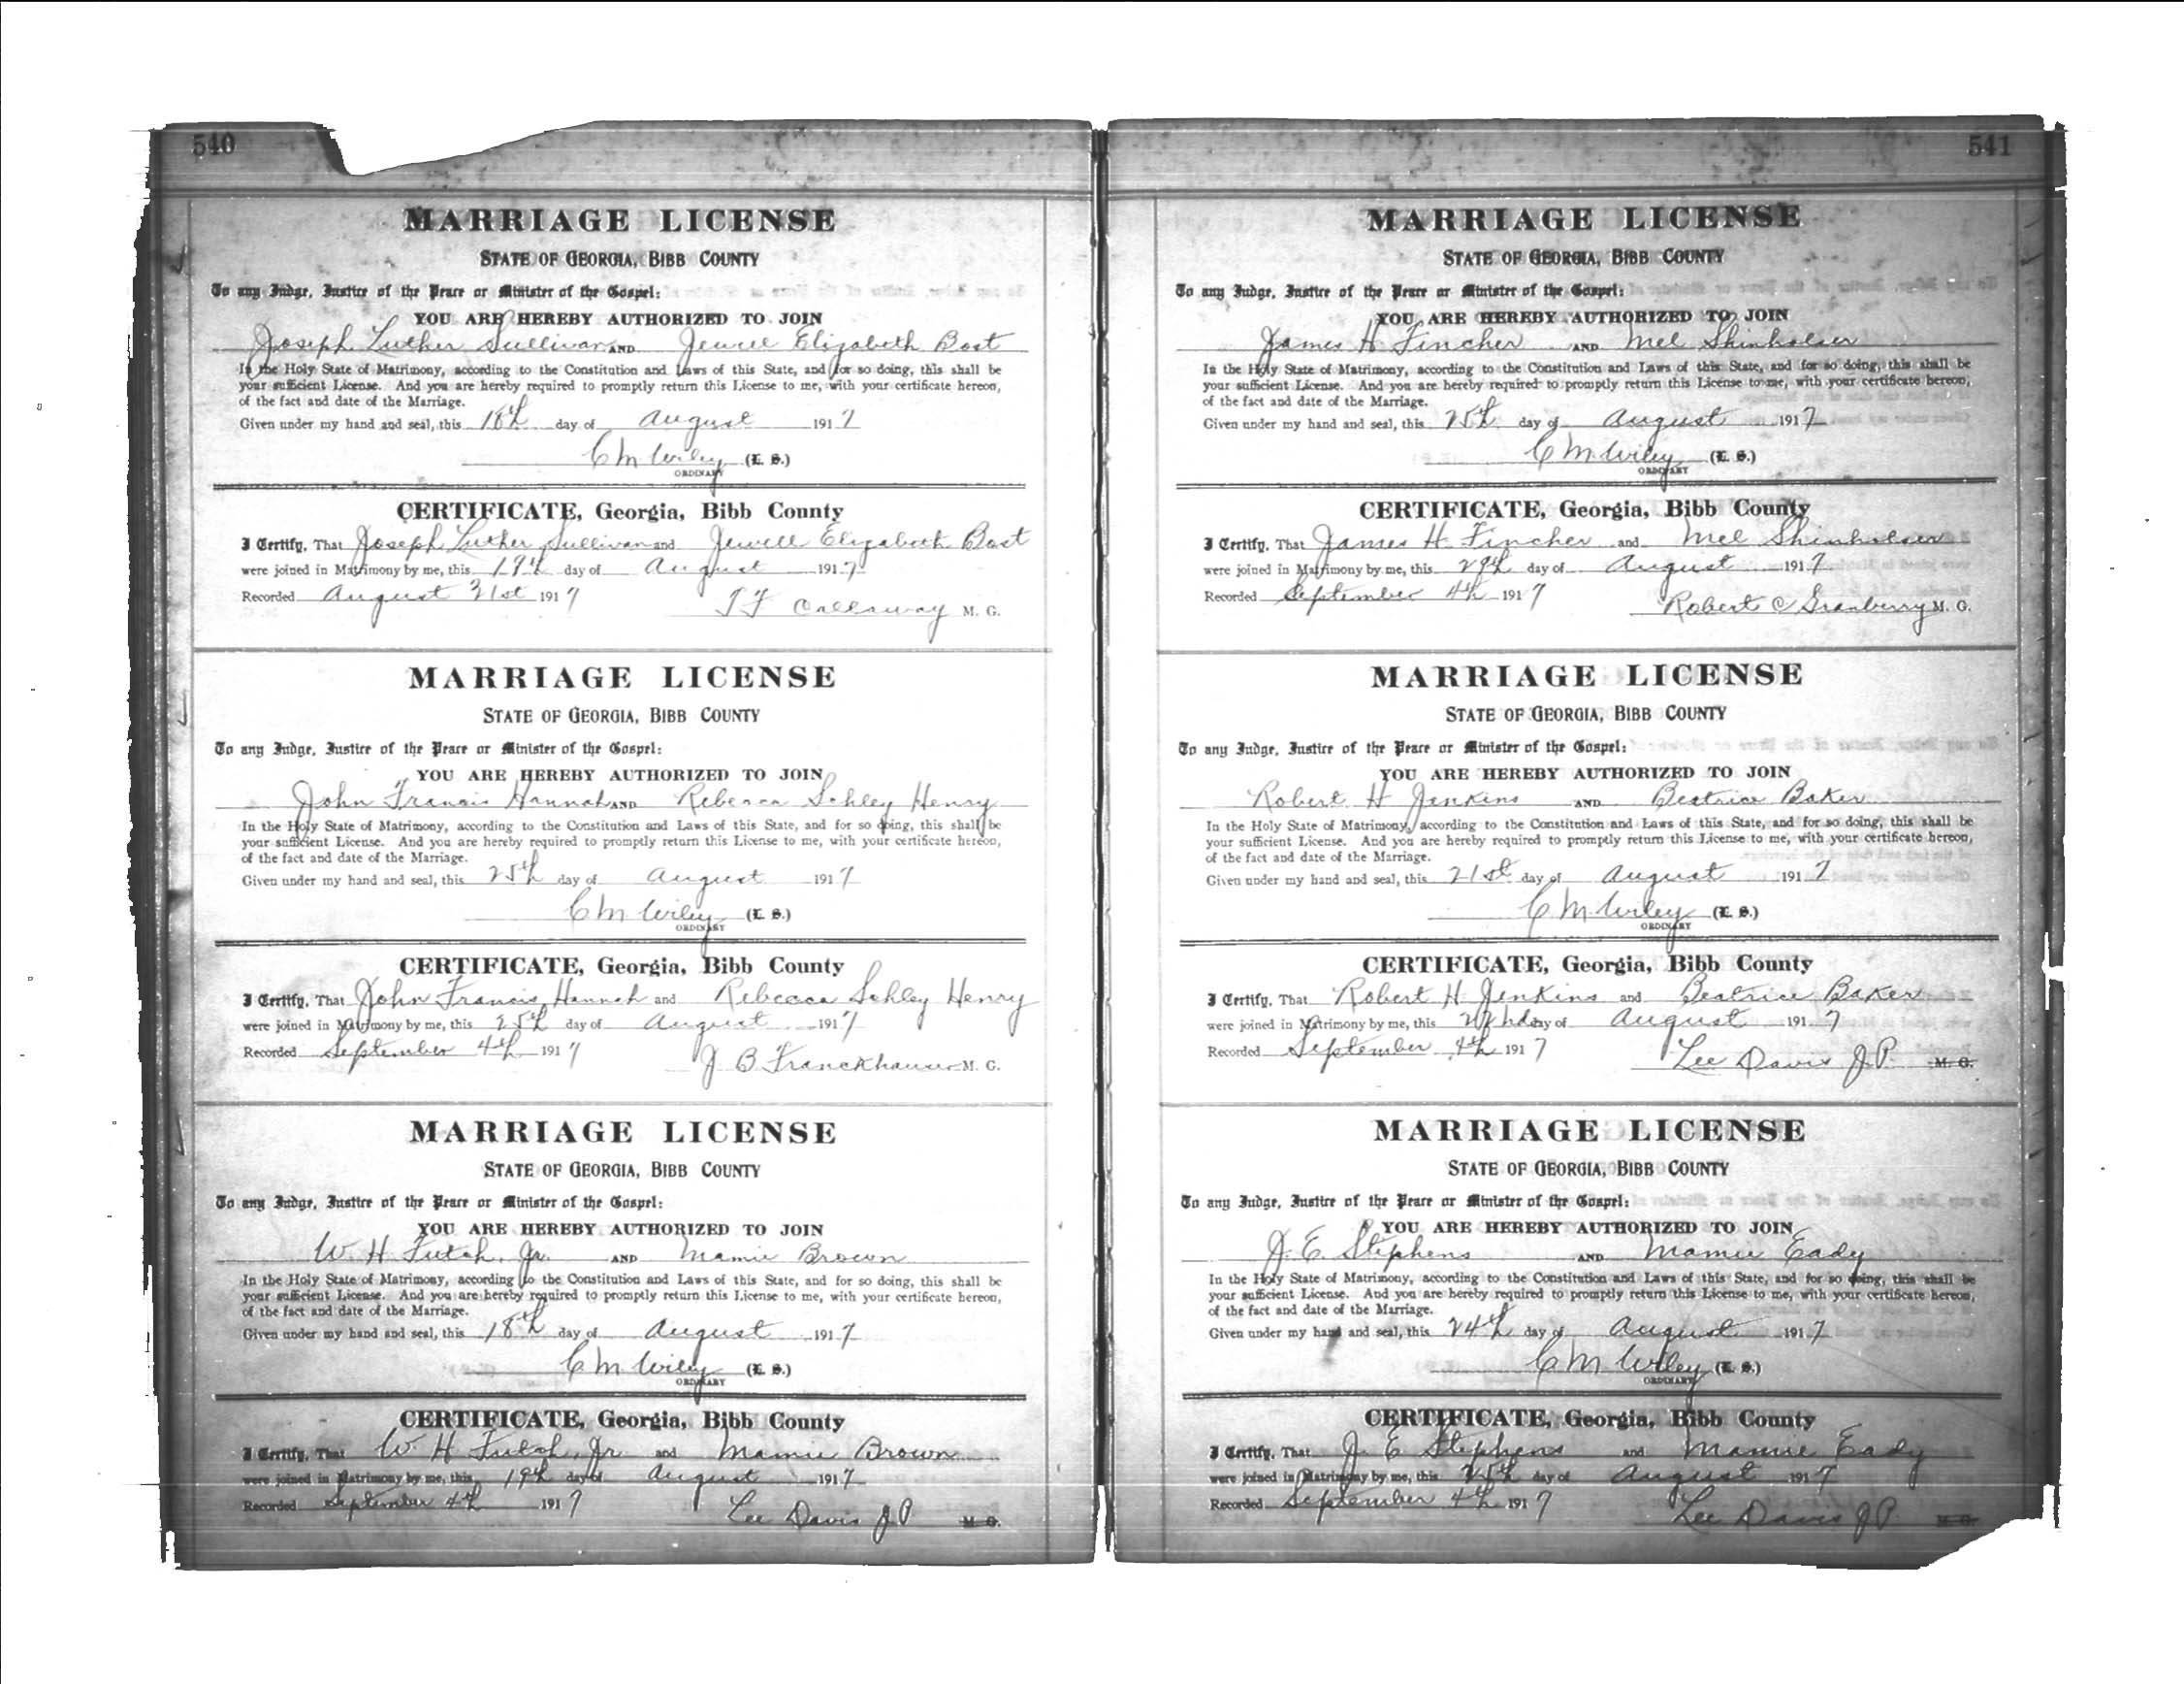 540
MARRIAGE LICENSE
STATE OF GEORGIA, BIBB COUNTY
To any Judge, Justice of the Peace or Minister of the Gospel:
YOU ARE HEREBY AUTHORIZED TO JOIN
Joseph Luther Sullivan AND Jewell Elizabeth Bost
In the Holy State of Matrimony, according to the Constitution and Laws of this State, and for so doing, this shall be
your sufficient License. And you are hereby required to promptly return this License to me, with your certificate hereon,
of the fact and date of the Marriage.
Given under my hand and seal, this 18th day of August 1917
C M Wiley (L. S.)
ORDINARY
CERTIFICATE, Georgia, Bibb County
I Certify, That Joseph Luther Sullivan and Jewell Elizabeth Bost
were joined in Matrimony by me, this 19th day of August 1917
Recorded August 31st 1917 T F Callaway M. G.
MARRIAGE LICENSE
STATE OF GEORGIA, BIBB COUNTY
To any Judge, Justice of the Peace or Minister of the Gospel:
YOU ARE HEREBY AUTHORIZED TO JOIN
John Francis Hannah AND Rebecca Schley Henry
In the Holy State of Matrimony, according to the Constitution and Laws of this State, and for so doing, this shall be
your sufficient License. And you are hereby required to promptly return this License to me, with your certificate hereon,
of the fact and date of the Marriage.
Given under my hand and seal, this 25th day of August 1917
C M Wiley (L. S.)
ORDINARY
CERTIFICATE, Georgia, Bibb County
I Certify, That John Francis Hannah and Rebecca Schley Henry
were joined in Matrimony by me, this 25th day of August 1917
Recorded September 4th 1917 J B Franckhauser M. G.
MARRIAGE LICENSE
STATE OF GEORGIA, BIBB COUNTY
To any Judge, Justice of the Peace or Minister of the Gospel:
YOU ARE HEREBY AUTHORIZED TO JOIN
W. H Futch, Jr. AND Mamie Brown
In the Holy State of Matrimony, according to the Constitution and Laws of this State, and for so doing, this shall be
your sufficient License. And you are hereby required to promptly return this License to me, with your certificate hereon,
of the fact and date of the Marriage.
Given under my hand and seal, this 18th day of August 1917
C M Wiley (L. S.)
ORDINARY
CERTIFICATE, Georgia, Bibb County
I Certify, That W. H Futch, Jr. and Mamie Brown
were joined in Matrimony by me, this 19th day of August 1917
Recorded September 4th 1917 Lee Davis J P M. G.
541
MARRIAGE LICENSE
STATE OF GEORGIA, BIBB COUNTY
To any Judge, Justice of the Peace or Minister of the Gospel:
YOU ARE HEREBY AUTHORIZED TO JOIN
James H Fincher AND Mel Shinholser
In the Holy State of Matrimony, according to the Constitution and Laws of this State, and for so doing, this shall be
your sufficient License. And you are hereby required to promptly return this License to me, with your certificate hereon,
of the fact and date of the Marriage.
Given under my hand and seal, this 25th day of August 1917
C M Wiley (L. S.)
ORDINARY
CERTIFICATE, Georgia, Bibb County
I Certify, That James H Fincher and Mel Shinholser
were joined in Matrimony by me, this 29th day of August 1917
Recorded September 4th 1917 Robert C Granberry M. G.
MARRIAGE LICENSE
STATE OF GEORGIA, BIBB COUNTY
To any Judge, Justice of the Peace or Minister of the Gospel:
YOU ARE HEREBY AUTHORIZED TO JOIN
Robert H Jenkins AND Beatrice Baker
In the Holy State of Matrimony, according to the Constitution and Laws of this State, and for so doing, this shall be
your sufficient License. And you are hereby required to promptly return this License to me, with your certificate hereon,
of the fact and date of the Marriage.
Given under my hand and seal, this 21st day of August 1917
C M Wiley (L. S.)
ORDINARY
CERTIFICATE, Georgia, Bibb County
I Certify, That Robert H Jenkins and Beatrice Baker
were joined in Matrimony by me, this 22nd day of August 1917
Recorded September 4th 1917 Lee Davis J. P. M. G.
MARRIAGE LICENSE
STATE OF GEORGIA, BIBB COUNTY
To any Judge, Justice of the Peace or Minister of the Gospel:
YOU ARE HEREBY AUTHORIZED TO JOIN
J. E Stephens AND Mamie Eady
In the Holy State of Matrimony, according to the Constitution and Laws of this State, and for so doing, this shall be
your sufficient License. And you are hereby required to promptly return this License to me, with your certificate hereon,
of the fact and date of the Marriage.
Given under my hand and seal, this 24th day of August 1917
C M Wiley (L. S.)
ORDINARY
CERTIFICATE, Georgia, Bibb County
I Certify, That J. E Stephens and Mamie Eady
were joined in Matrimony by me, this 25th day of August 1917
Recorded September 4th 1917 Lee Davis J P. M. G.